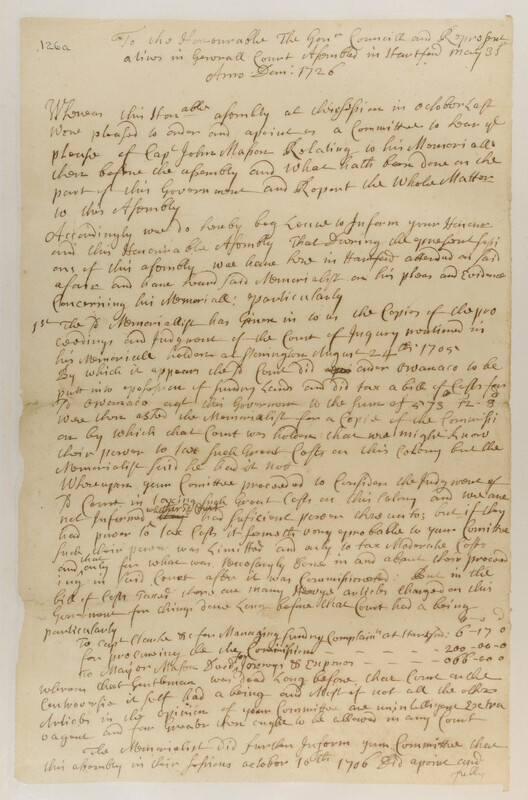 126a
To the Honourable The Gour Councill and Represent
atives in Generall Court Asembled in Hartford May 3d
Anno Domi: 1726
Whereas this Honable asembly at theire session in october Last
Were pleased to order and apoint us a Committee to hear ye
please of Capt John Mason Relating to his Memoriall
then before the asembly and What hath been done on the
part of this Government and Report the Whole Matter
to this Asembly
Accordingly we do hereby beg Leave to Inform your Honours
and this Honourable Asembly That During the present sessi
ons of this asembly we have here in Hartford attended on said
afaire and have heard said Memorialist on his pleas and Evidence
Concerning his Memoriall: perticularly
1st The sd Memorialist has Given in to us the Copies of the pro
ceedings and Judgment of the Court of Inquiry mentioned in
his Memoriall holden at stonington August 24th: 1705
By which it appears the sd Court did order owanaco to be
putt into possession of sundry Lands and did tax a bill of Costs for
sd owanaco agt this Government to the sum of 573 - 12 - 8
Were then asked the Memorialist for a Copie of the Commissi
on by which that Court was holden that we might know
their power to tax such Great Costs on this Colony but the
Memorialist said he had it not
Whereupon your Comittee proceeded to Consider the Judgment of
sd Court in taxing such Great Costs on this Colony and we are
not Informed whether sd Court had suficient power thereunto; but if they
had power to tax Costs it seemeth very probable to your Comittee
such their power was Limitted and only to tax Moderate Costs
and that only for what was Necessarily done in and about their proceed
ing in said Court after it was Commissionated: But in the
bill of Costs taxed there are many articles Charged on this
Government for things done Long before that Court had a being
particularly
To Capt Clarke &c for Managing sundry Complaints at Hartford 6-17 0
for procuring the Commission - - - - 200-00-0
To Major Mason Decd for Jorneys & Expences - - 066-00-0
Whereas that Gentleman was Dead Long before that Court or the
Controversie it self had a being and Most if not all the other
Articles in the opinion of your Committee are unintelligible Extra
vagent and far Greater then ought to be allowed in any Court
The Memorialist Did further Inform your Committee that
this asembly in their sessions october 10th 1706 Did apoint and
fully